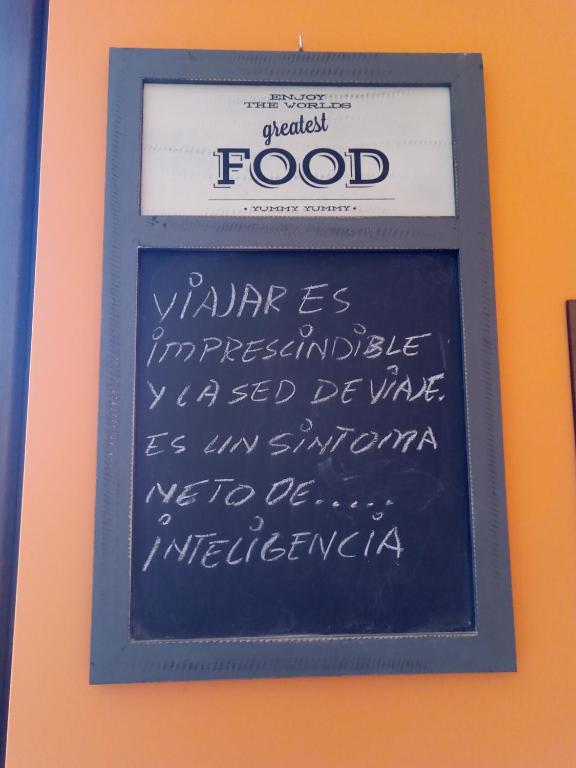 ENJOY
THE WORLDS
greatest
FOOD
• YUMMY YUMMY •
VIAJAR ES
IMPRESCINDIBLE
Y LA SED DE VIAJE.
ES UN SINTOMA
NETO DE.....
INTELIGENCIA